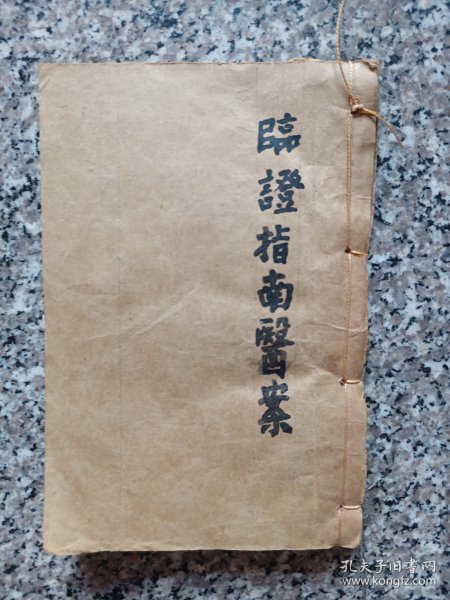 臨證指南醫案
孔夫子旧书网
www.kongfz.com